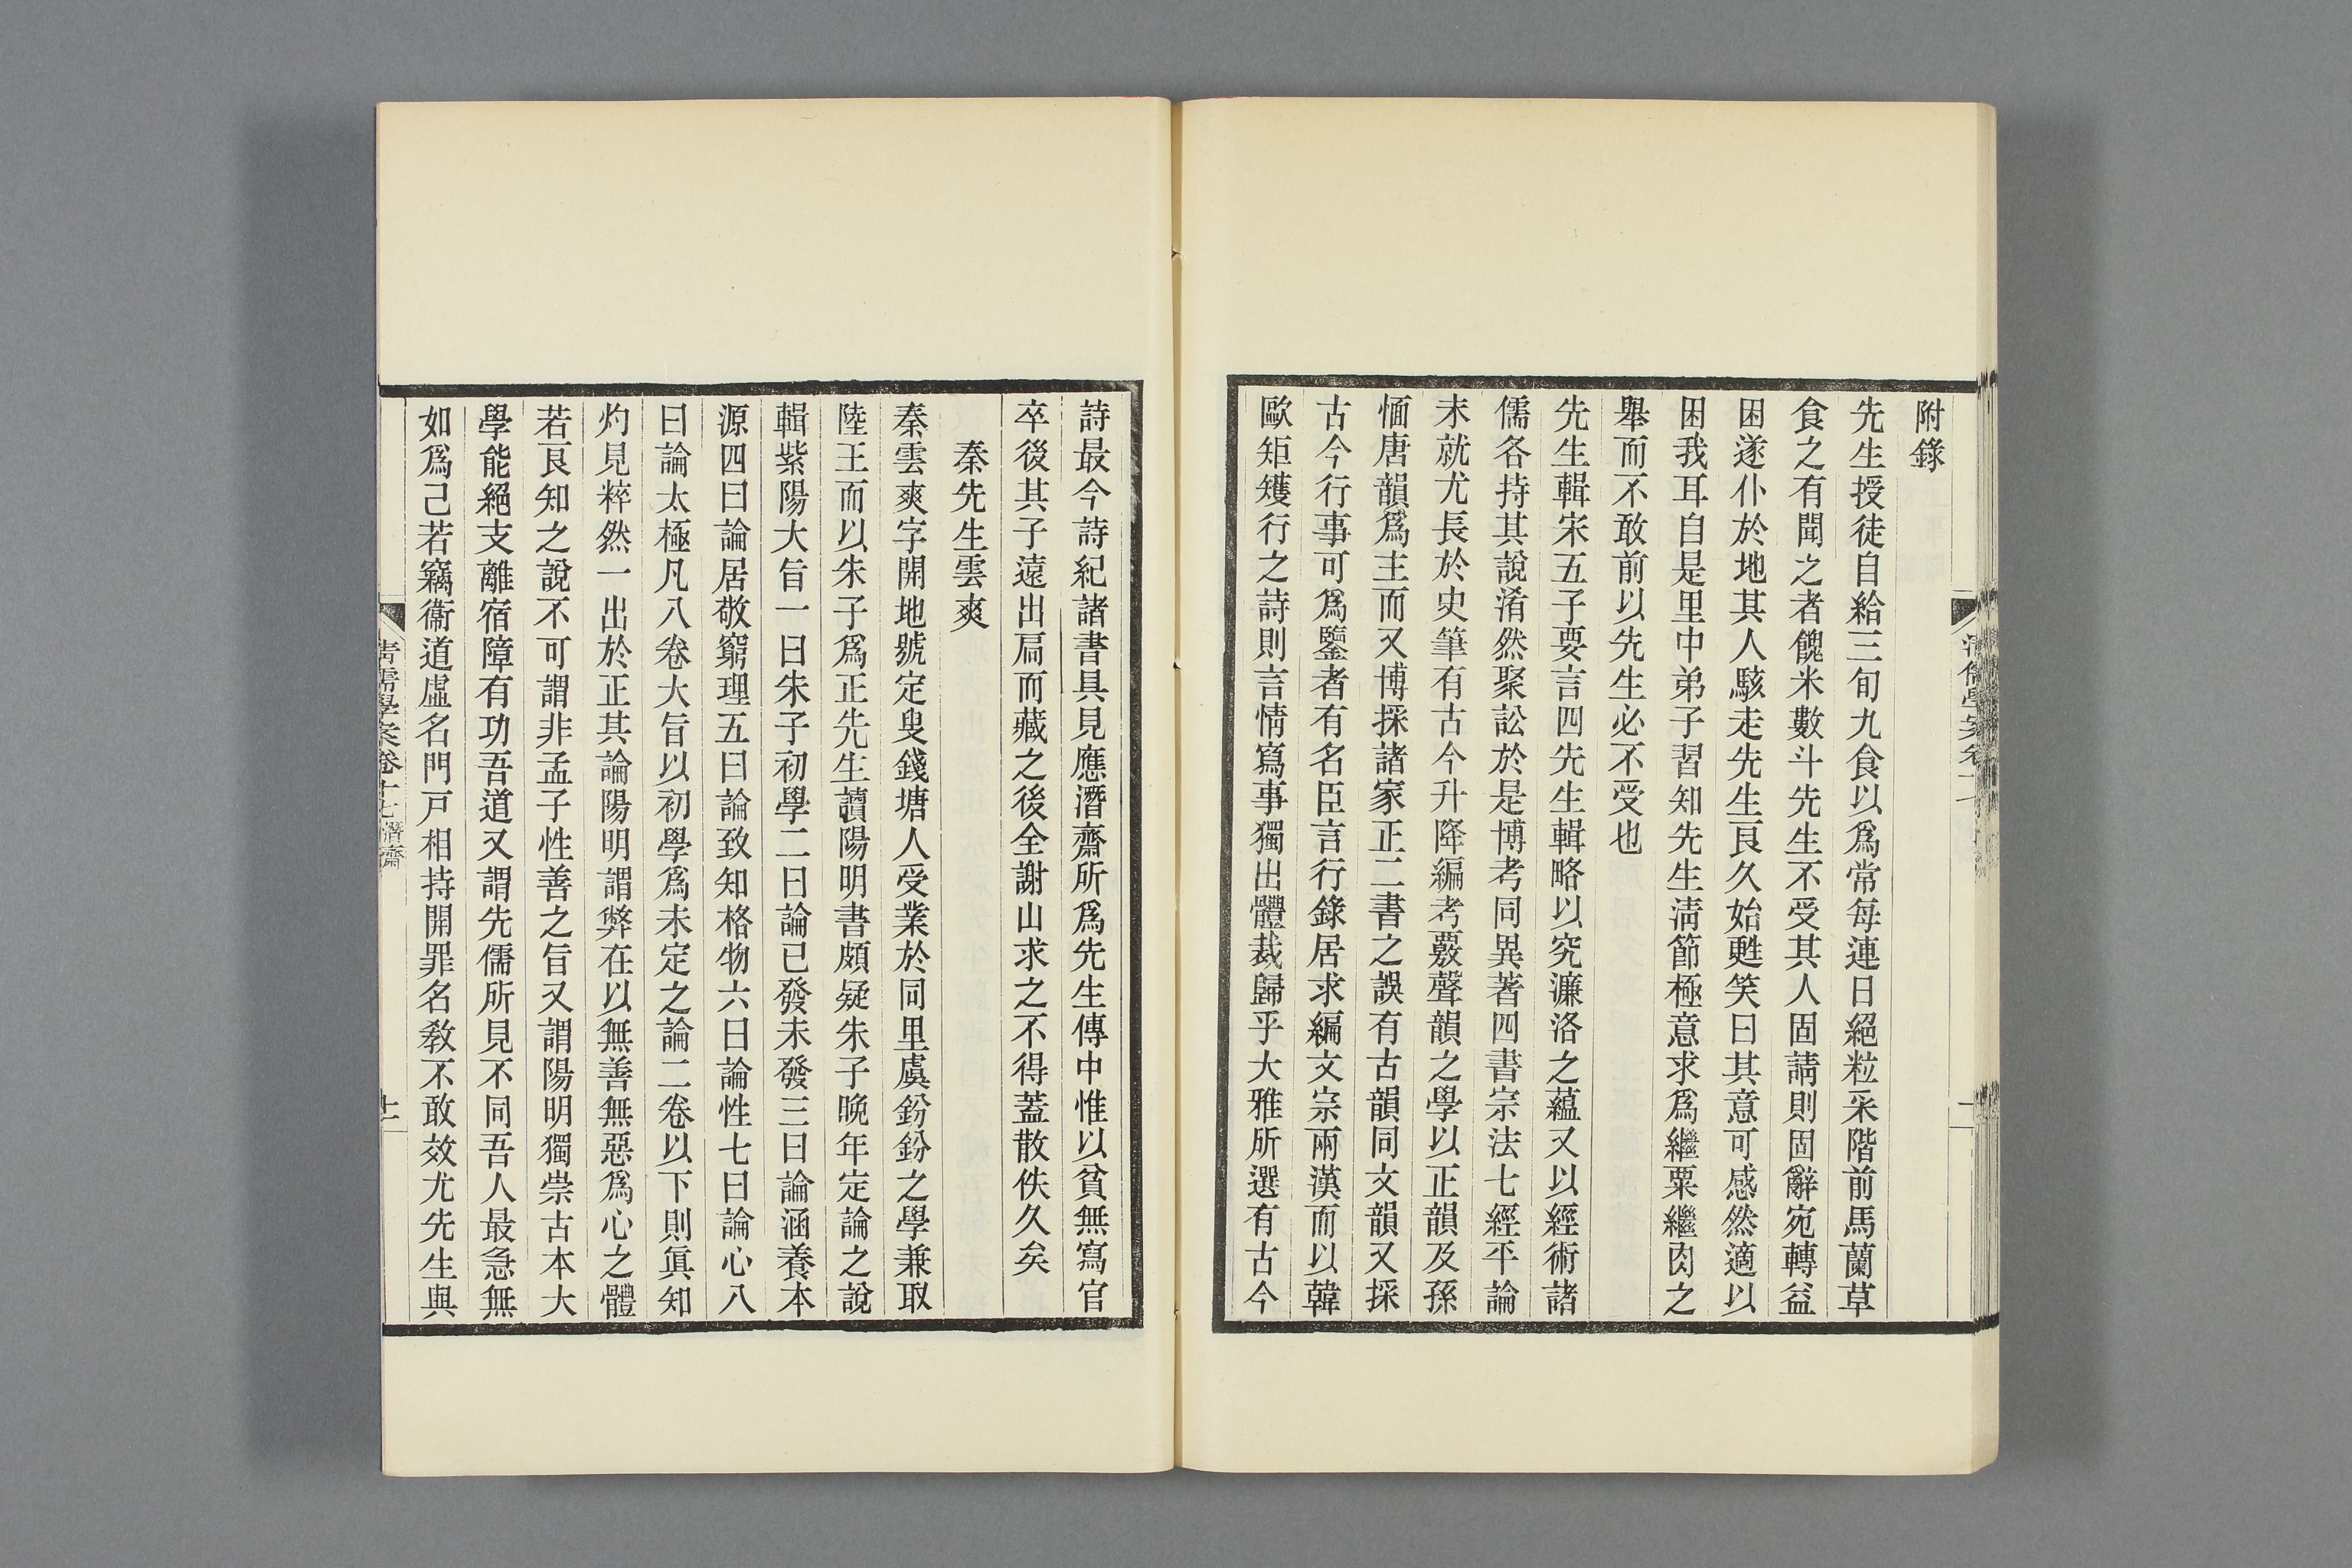 附錄
先生授徒自給三旬九食以爲常每連日絕粒采階前馬蘭草
食之有聞之者餽米數斗先生不受其人固請則固辭宛轉益
困遂仆於地其人駭走先生良久始甦笑曰其意可感然適以
困我耳自是里中弟子習知先生清節極意求爲繼粟繼肉之
舉而不敢前以先生必不受也
先生輯宋五子要言四先生輯略以究濂洛之蘊又以經術諸
儒各持其說淆然聚訟於是博考同異著四書宗法七經平論
未就尤長於史筆有古今升降編考覈聲韻之學以正韻及孫
愐唐韻爲主而又博採諸家正二書之誤有古韻同文韻又採
古今行事可爲鑒者有名臣言行錄居求編文宗兩漢而以韓
歐矩矱行之詩則言情寫事獨出體裁歸乎大雅所選有古今
詩最今詩紀諸書具見應潛齋所爲先生傳中惟以貧無寫官
卒後其子遠出扃而藏之後全謝山求之不得蓋散佚久矣
秦先生雲爽
秦雲爽字開地號定叟錢塘人受業於同里虞鈖鈖之學兼取
陸王而以朱子爲正先生讀陽明書頗疑朱子晚年定論之說
輯紫陽大旨一曰朱子初學二曰論已發未發三曰論涵養本
源四曰論居敬窮理五曰論致知格物六曰論性七曰論心八
曰論太極凡八卷大旨以初學爲未定之論二卷以下則眞知
灼見粹然一出於正其論陽明謂弊在以無善無惡爲心之體
若良知之說不可謂非孟子性善之旨又謂陽明獨崇古本大
學能絕支離宿障有功吾道又謂先儒所見不同吾人最急無
如爲己若竊衞道虛名門戸相持開罪名敎不敢效尤先生與
清儒學案卷十七 潛齋
十二